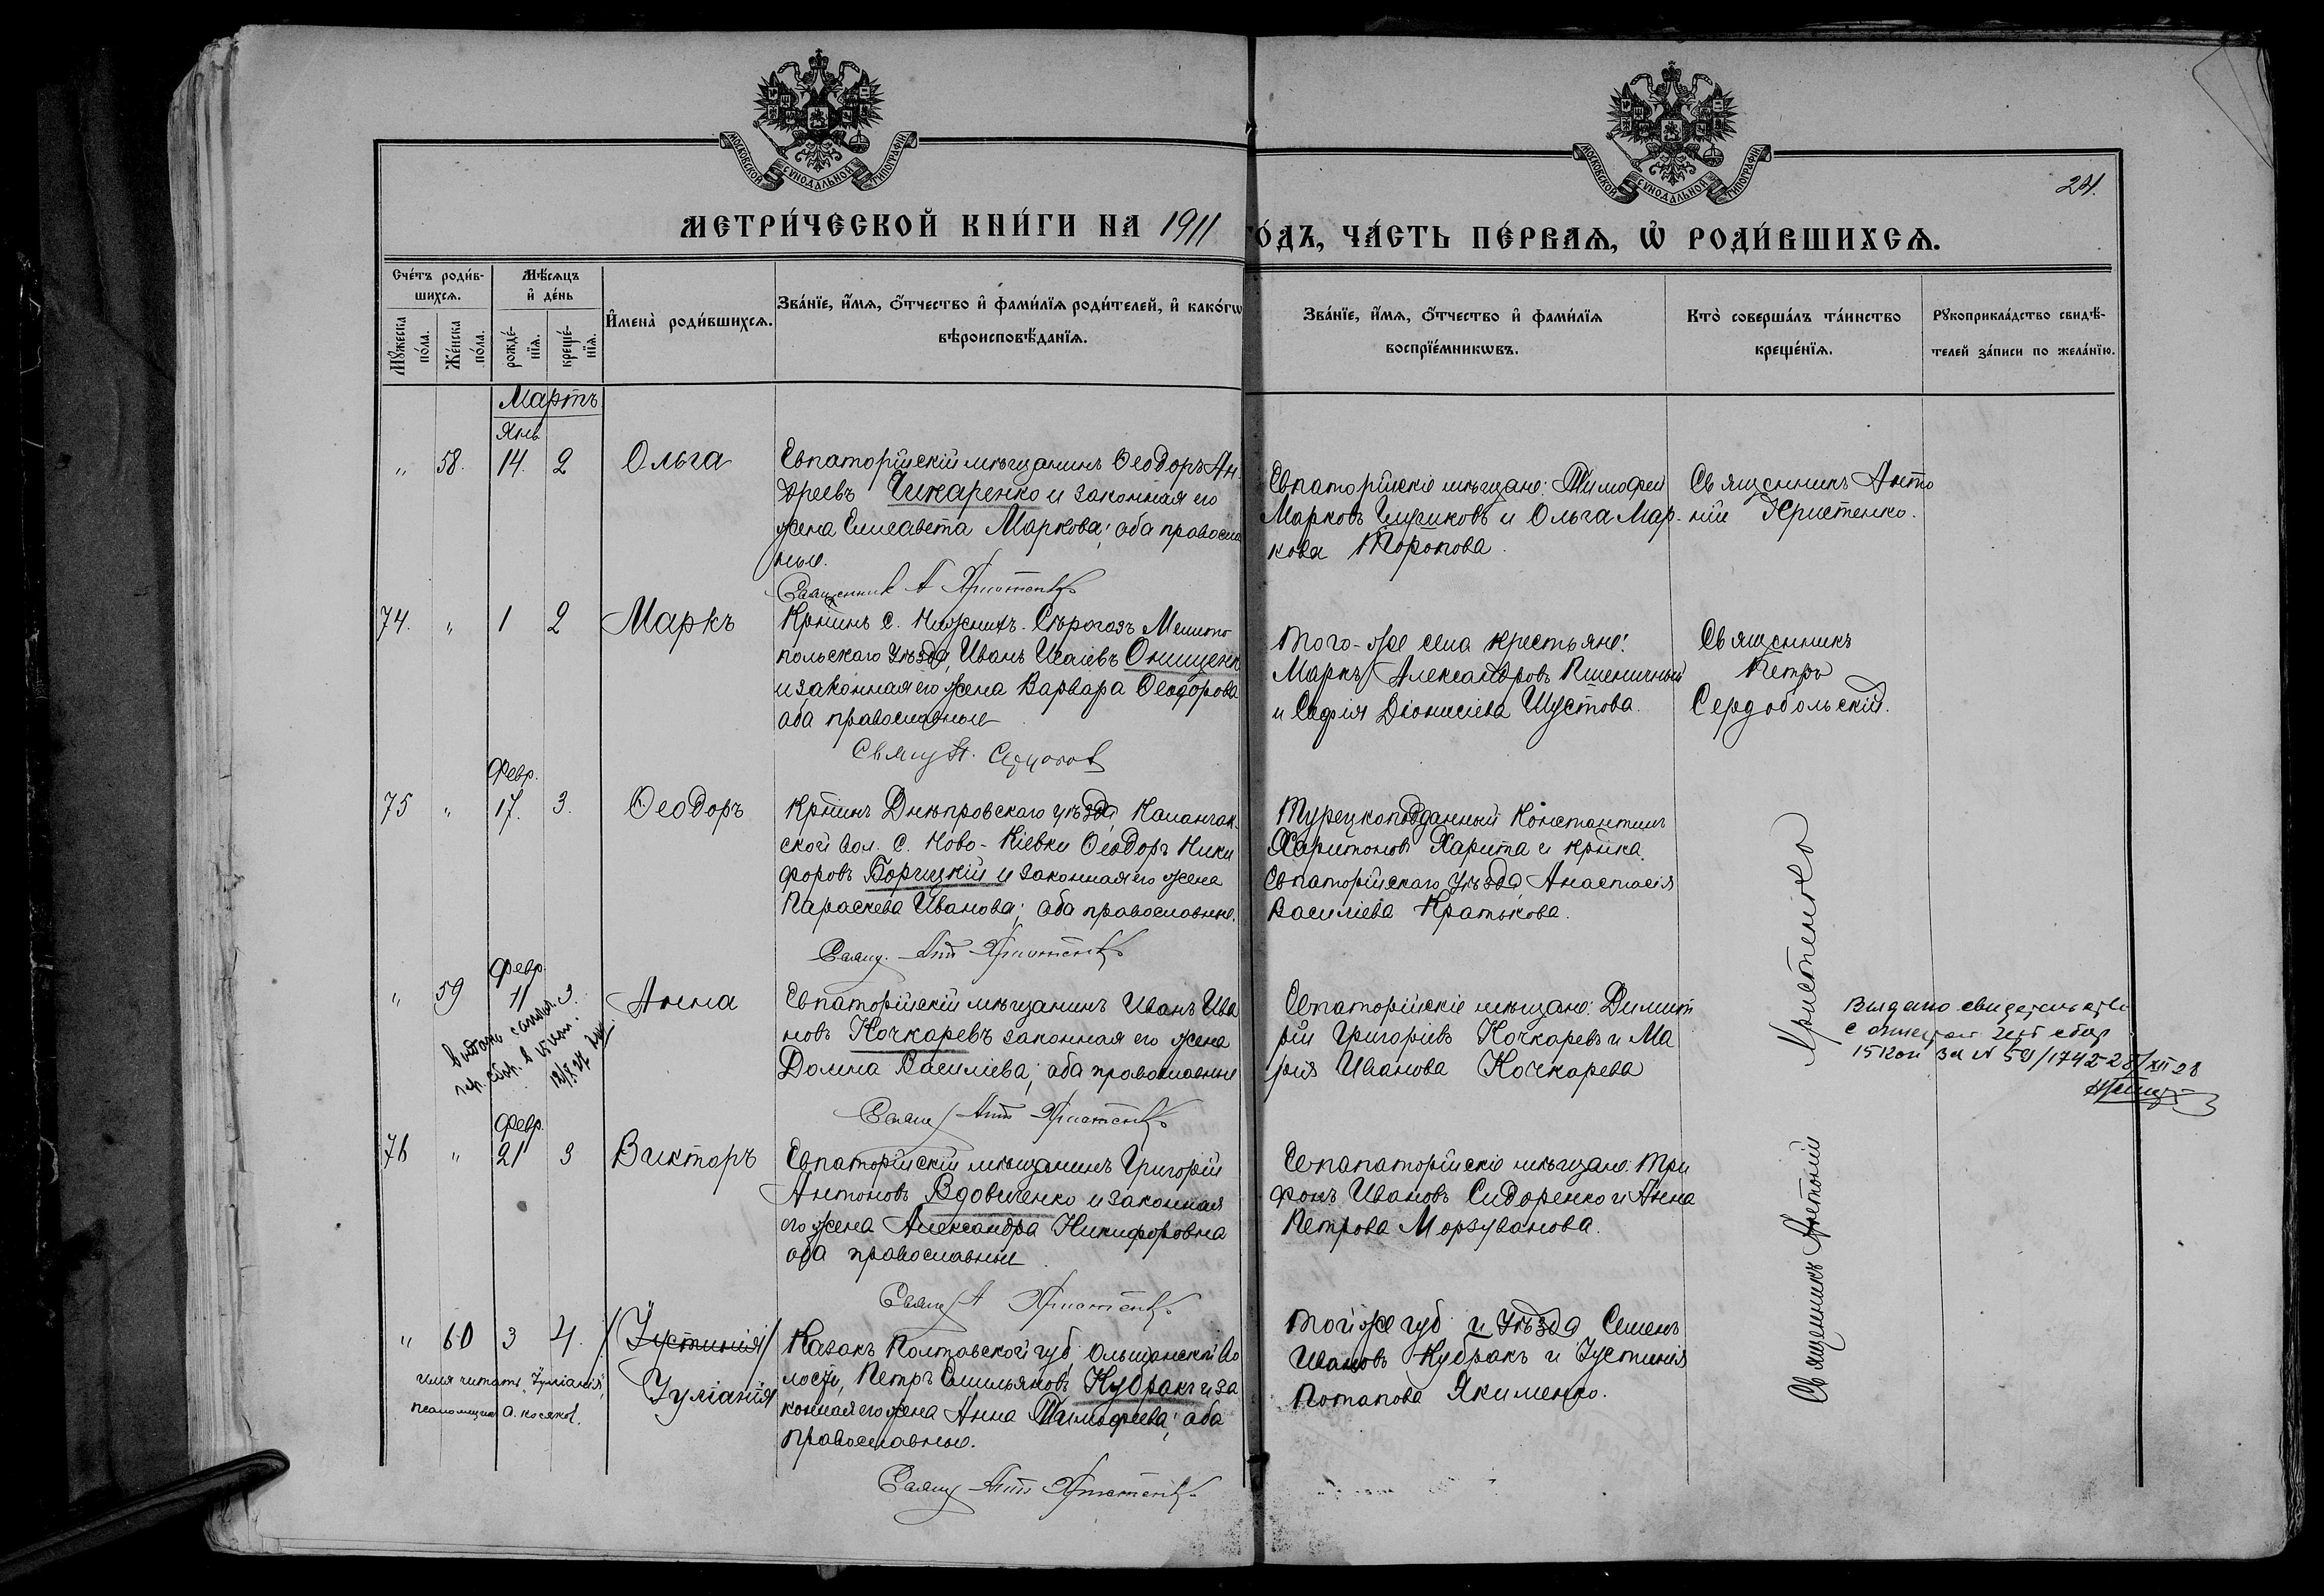 МОСКОВСКОЙ СѴНОДАЛЬНОЙ ТИПОГРАФІИ
МОСКОВСКОЙ СѴНОДАЛЬНОЙ ТИПОГРАФІИ
24.
МЕТРИ́ЧЕСКОЙ КНИ́ГИ НА 1911 ГО́ДЪ, ЧА́СТЬ ПЕ́РВАѦ, Ѡ РОДИ́ВШИХСѦ.
Счє́тъ роди́в-
шихсѧ.
Мꙋ́жеска по́ла.
Же́нска по́ла.
Мѣ́сѧцъ
и҆ де́нь
рожде́-
нїѧ.
креще́-
нїѧ.
И҆мена̀ роди́вшихсѧ.
Зва́нїе, и҆́мѧ, ѻ҆́тчество и҆ фами́лїѧ роди́телей, и҆ како́гѡ
вѣроисповѣ́данїѧ.
Зва́нїе, и҆́мѧ, ѻ҆́тчество и҆ фами́лїѧ
воспрїе́мникѡвъ.
Кто̀ соверша́лъ та́инство
креще́нїѧ.
Рꙋкоприкла́дство свидѣ́-
телей за́писи по жела́нїю.
Мартъ
Янв
" 58. 14. 2 Ольга
Евпаторійскій мѣщанинъ Ѳеодоръ Ан
дреевъ Чикаренко и законная его
жена Елисавета Маркова; оба православ
ные.
Священник А Христенко
Евпаторійскіе мѣщане: Тимофей
Марковъ Чичиковъ и Ольга Мар-
кова Торопова.
Священникъ Анто
ній Христенко.
74. " 1 2 Маркъ
Крнинъ с. Нижнихъ-Сѣрогозъ Мелито
польскаго уѣзда, Иванъ Исаіевъ Онищенк
и законная его жена Варвара Ѳеодорова
оба православные
Свящ П.
Того-же села крестьяне:
Маркъ Александровъ Пшеничный
и Софія Діонисіева Шустова.
Священникъ
Петръ
Сердобольскій.
Февр.
75 " 17. 3. Ѳеодоръ
Крнинъ Днѣпровскаго уѣзда, Каланчак
ской вол. с. Ново-Кіевки Ѳеодоръ Ники
форовъ Боргицкій и законная его жена
Параскева Иванова; оба православные.
Свящ. Ант Христенко
Турецкоподданный Константинъ
Харитоновъ Харита и крнка
Евпаторійскаго уѣзда Анастасія
Василіева Кратькова.
Февр.
" 59 11 3. Анна
Евпаторійскій мѣщанинъ Иванъ Ива
новъ Кочкаревъ законная его жена
Домна Василіева; оба православные
Свящ Ант Христенко
Евпаторійскіе мѣщане: Димит
рій Григорьевъ Кочкаревъ и Ма
рія Иванова Кочкарева
Выдано свидетельство
с
15 коп за № 59/1742 28/XII 28
Февр.
76 " 21 3 Викторъ
Евпаторійскій мѣщанинъ Григорій
Антоновъ Вдовиченко и законная
его жена Александра Никифоровна
оба православные.
Свящ А Христенко
Евпапаторійскіе мѣщане: Три
фонъ Ивановъ Сидоренко и Анна
Петрова Моргуванова.
" 60 3 4. /Іустинія/
Имя читать "Іуліанія"
Псаломщик А. Косяков.
Іуліанія
Казакъ Полтавской губ Ольшанской Во
лости, Петръ Емильяновъ Кубракъ и за
конная его жена Анна Тимофеева; оба
православные.
Свящ Ант Христенко
Той же губ и уѣзда Семенъ
Ивановъ Кубракъ и Іустинія
Потапова Якименко.
Священникъ Антоній Христенко